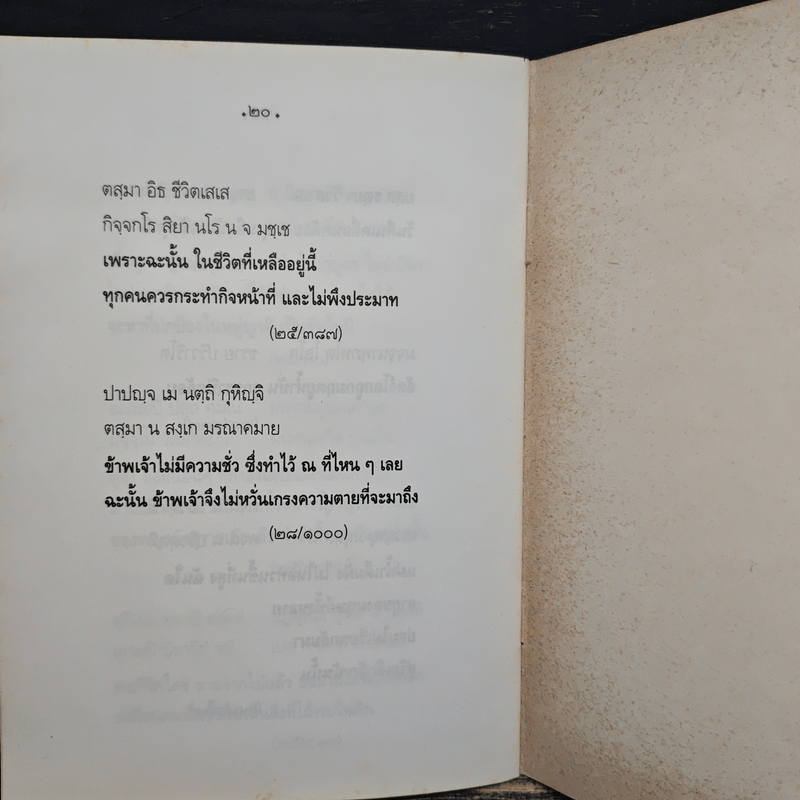 •๒๐•
ตสฺมา อิธ ชีวิตเสเส
กิจฺจกโร สิยา นโร น จ มชฺเช
เพราะฉะนั้น ในชีวิตที่เหลืออยู่นี้
ทุกคนควรกระทำกิจหน้าที่ และไม่พึงประมาท
(๒๕/๓๘๗)
ปาปญฺจ เม นตฺถิ กุหิญฺจิ
ตสฺมา น สงฺเก มรณาคมาย
ข้าพเจ้าไม่มีความชั่ว ซึ่งทำไว้ ณ ที่ไหน ๆ เลย
ฉะนั้น ข้าพเจ้าจึงไม่หวั่นเกรงความตายที่จะมาถึง
(๒๘/๑๐๐๐)